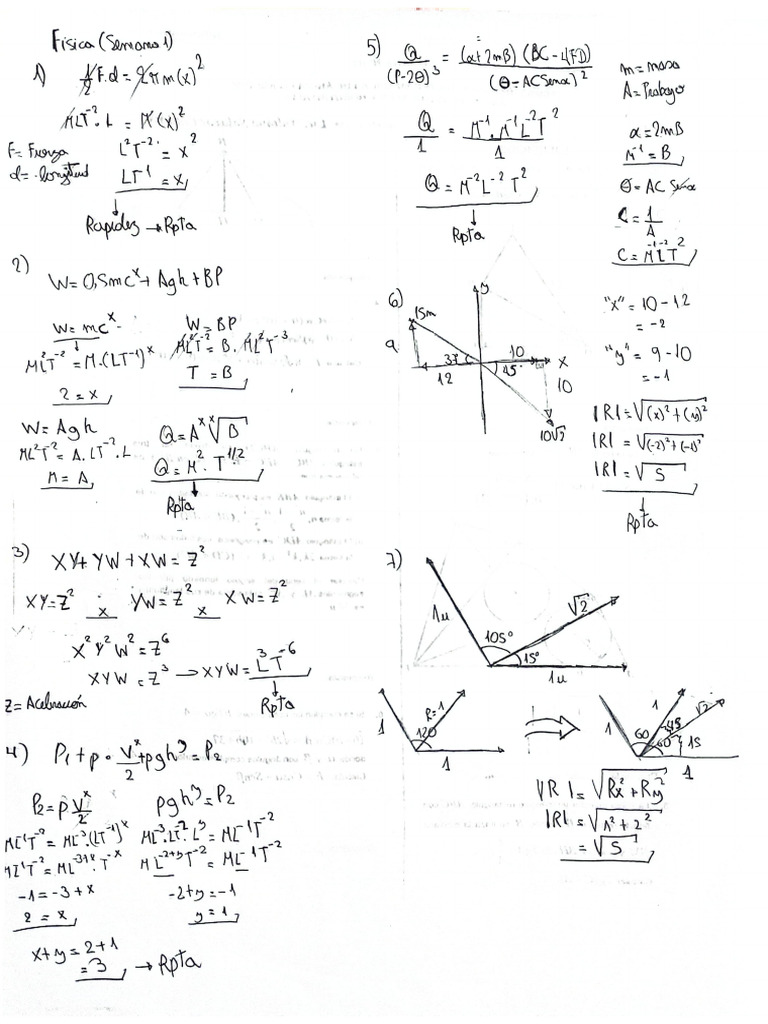 Física (Semana 1)
1) 1/2 F.d = 2π m(x)²
MLT⁻² . L = M(x)²
F = Fuerza
d = longitud
L²T⁻² = x²
LT⁻¹ = x
Rapidez → Rpta
2) W = 0,5mcˣ + Agh + BP
W = mcˣ
ML²T⁻² = M.(LT⁻¹)ˣ
2 = x
W = BP
ML²T⁻² = B. ML²T⁻³
T = B
W = Agh
ML²T⁻² = A. LT⁻². L
M = A
Q = Aˣ ˣ√B
Q = M². T^1/2
Rpta
3) XY + YW + XW = Z²
XY = Z² x YW = Z² x XW = Z²
X²Y²W² = Z⁶
XYW = Z³ → XYW = L³T⁻⁶
Z = Aceleración
Rpta
4) P₁ + p . Vˣ/2 + pghʸ = P₂
P₂ = p Vˣ/2
ML⁻¹T⁻² = ML⁻³.(LT⁻¹)ˣ
ML⁻¹T⁻² = ML⁻³⁺ˣ. T⁻ˣ
-1 = -3 + x
2 = x
pghʸ = P₂
ML⁻³. LT⁻². Lʸ = ML⁻¹T⁻²
ML⁻²⁺ʸ T⁻² = ML⁻¹T⁻²
-2 + y = -1
y = 1
x + y = 2 + 1
= 3 → Rpta
5) Q/(P-2θ)³ = (α+2mB)(BC-4FD)/(θ-ACSenα)²
Q/1 = M⁻¹. M⁻¹L⁻²T²/1
Q = M⁻²L⁻²T²
Rpta
m = masa
A = Trabajo
α = 2mB
M⁻¹ = B
θ = AC Senα
C = 1/A
C = M⁻¹L⁻²T²
6)
15m
y
9
37°
12
10
x
45°
10
10√2
"x" = 10 - 12
= -2
"y" = 9 - 10
= -1
|R| = √(x)² + (y)²
|R| = √(-2)² + (-1)²
|R| = √5
Rpta
7)
1u
105°
√2
15°
1u
1
R=1
120
1
1
1
60
45
√2
60°
15
1
|R| = √Rx² + Ry²
|R| = √1² + 2²
= √5